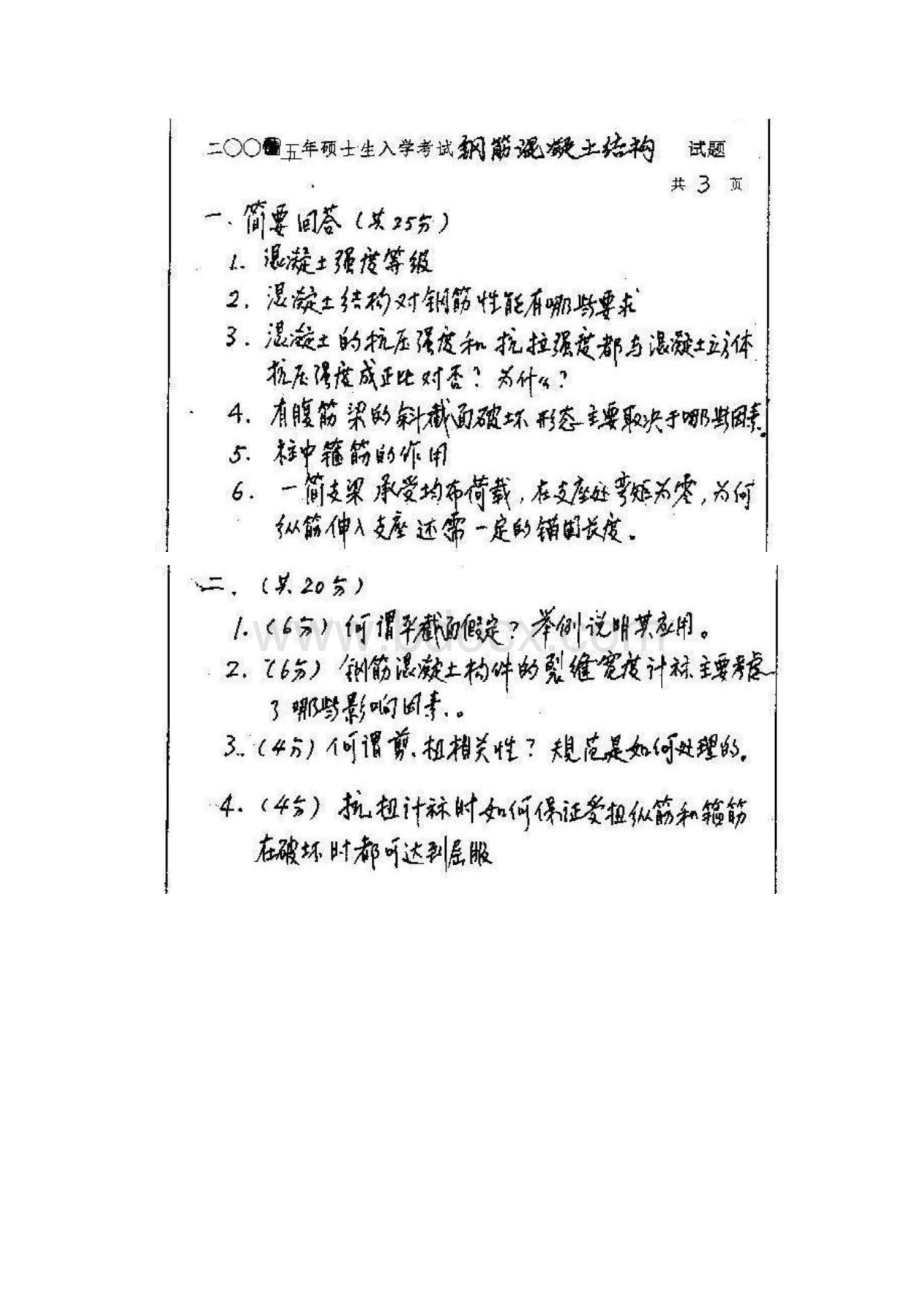 二〇〇五年硕士生入学考试 钢筋混凝土结构 试题
共 3 页
一、简要回答（共25分）
1. 混凝土强度等级
2. 混凝土结构对钢筋性能有哪些要求
3. 混凝土的抗压强度和抗拉强度都与混凝土立方体
抗压强度成正比对否？为什么？
4. 有腹筋梁的斜截面破坏形态主要取决于哪些因素。
5. 柱中箍筋的作用
6. 一简支梁承受均布荷载，在支座处弯矩为零，为何
纵筋伸入支座还需一定的锚固长度。
二、（共20分）
1.（6分）何谓平截面假定？举例说明其应用。
2.（6分）钢筋混凝土构件的裂缝宽度计标主要考虑
了哪些影响因素。
3.（4分）何谓剪、扭相关性？规范是如何处理的。
4.（4分）抗扭计标时如何保证受扭纵筋和箍筋
在破坏时都可达到屈服